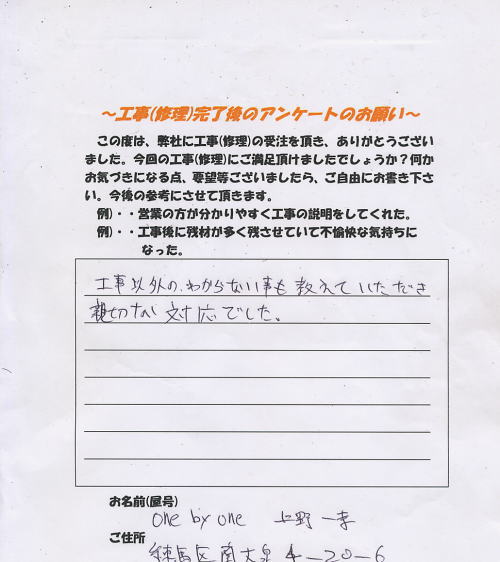 ～工事(修理)完了後のアンケートのお願い～
この度は、弊社に工事(修理)の受注を頂き、ありがとうござい
ました。今回の工事(修理)にご満足頂けましたでしょうか？何か
お気づきになる点、要望等ございましたら、ご自由にお書き下さ
い。今後の参考にさせて頂きます。
例)・・営業の方が分かりやすく工事の説明をしてくれた。
例)・・工事後に残材が多く残させていて不愉快な気持ちに
なった。
工事以外の、わからない事も教えていただき
親切な対応でした。
お名前(屋号)
one by one 上野 一幸
ご住所
練馬区南大泉4-20-6